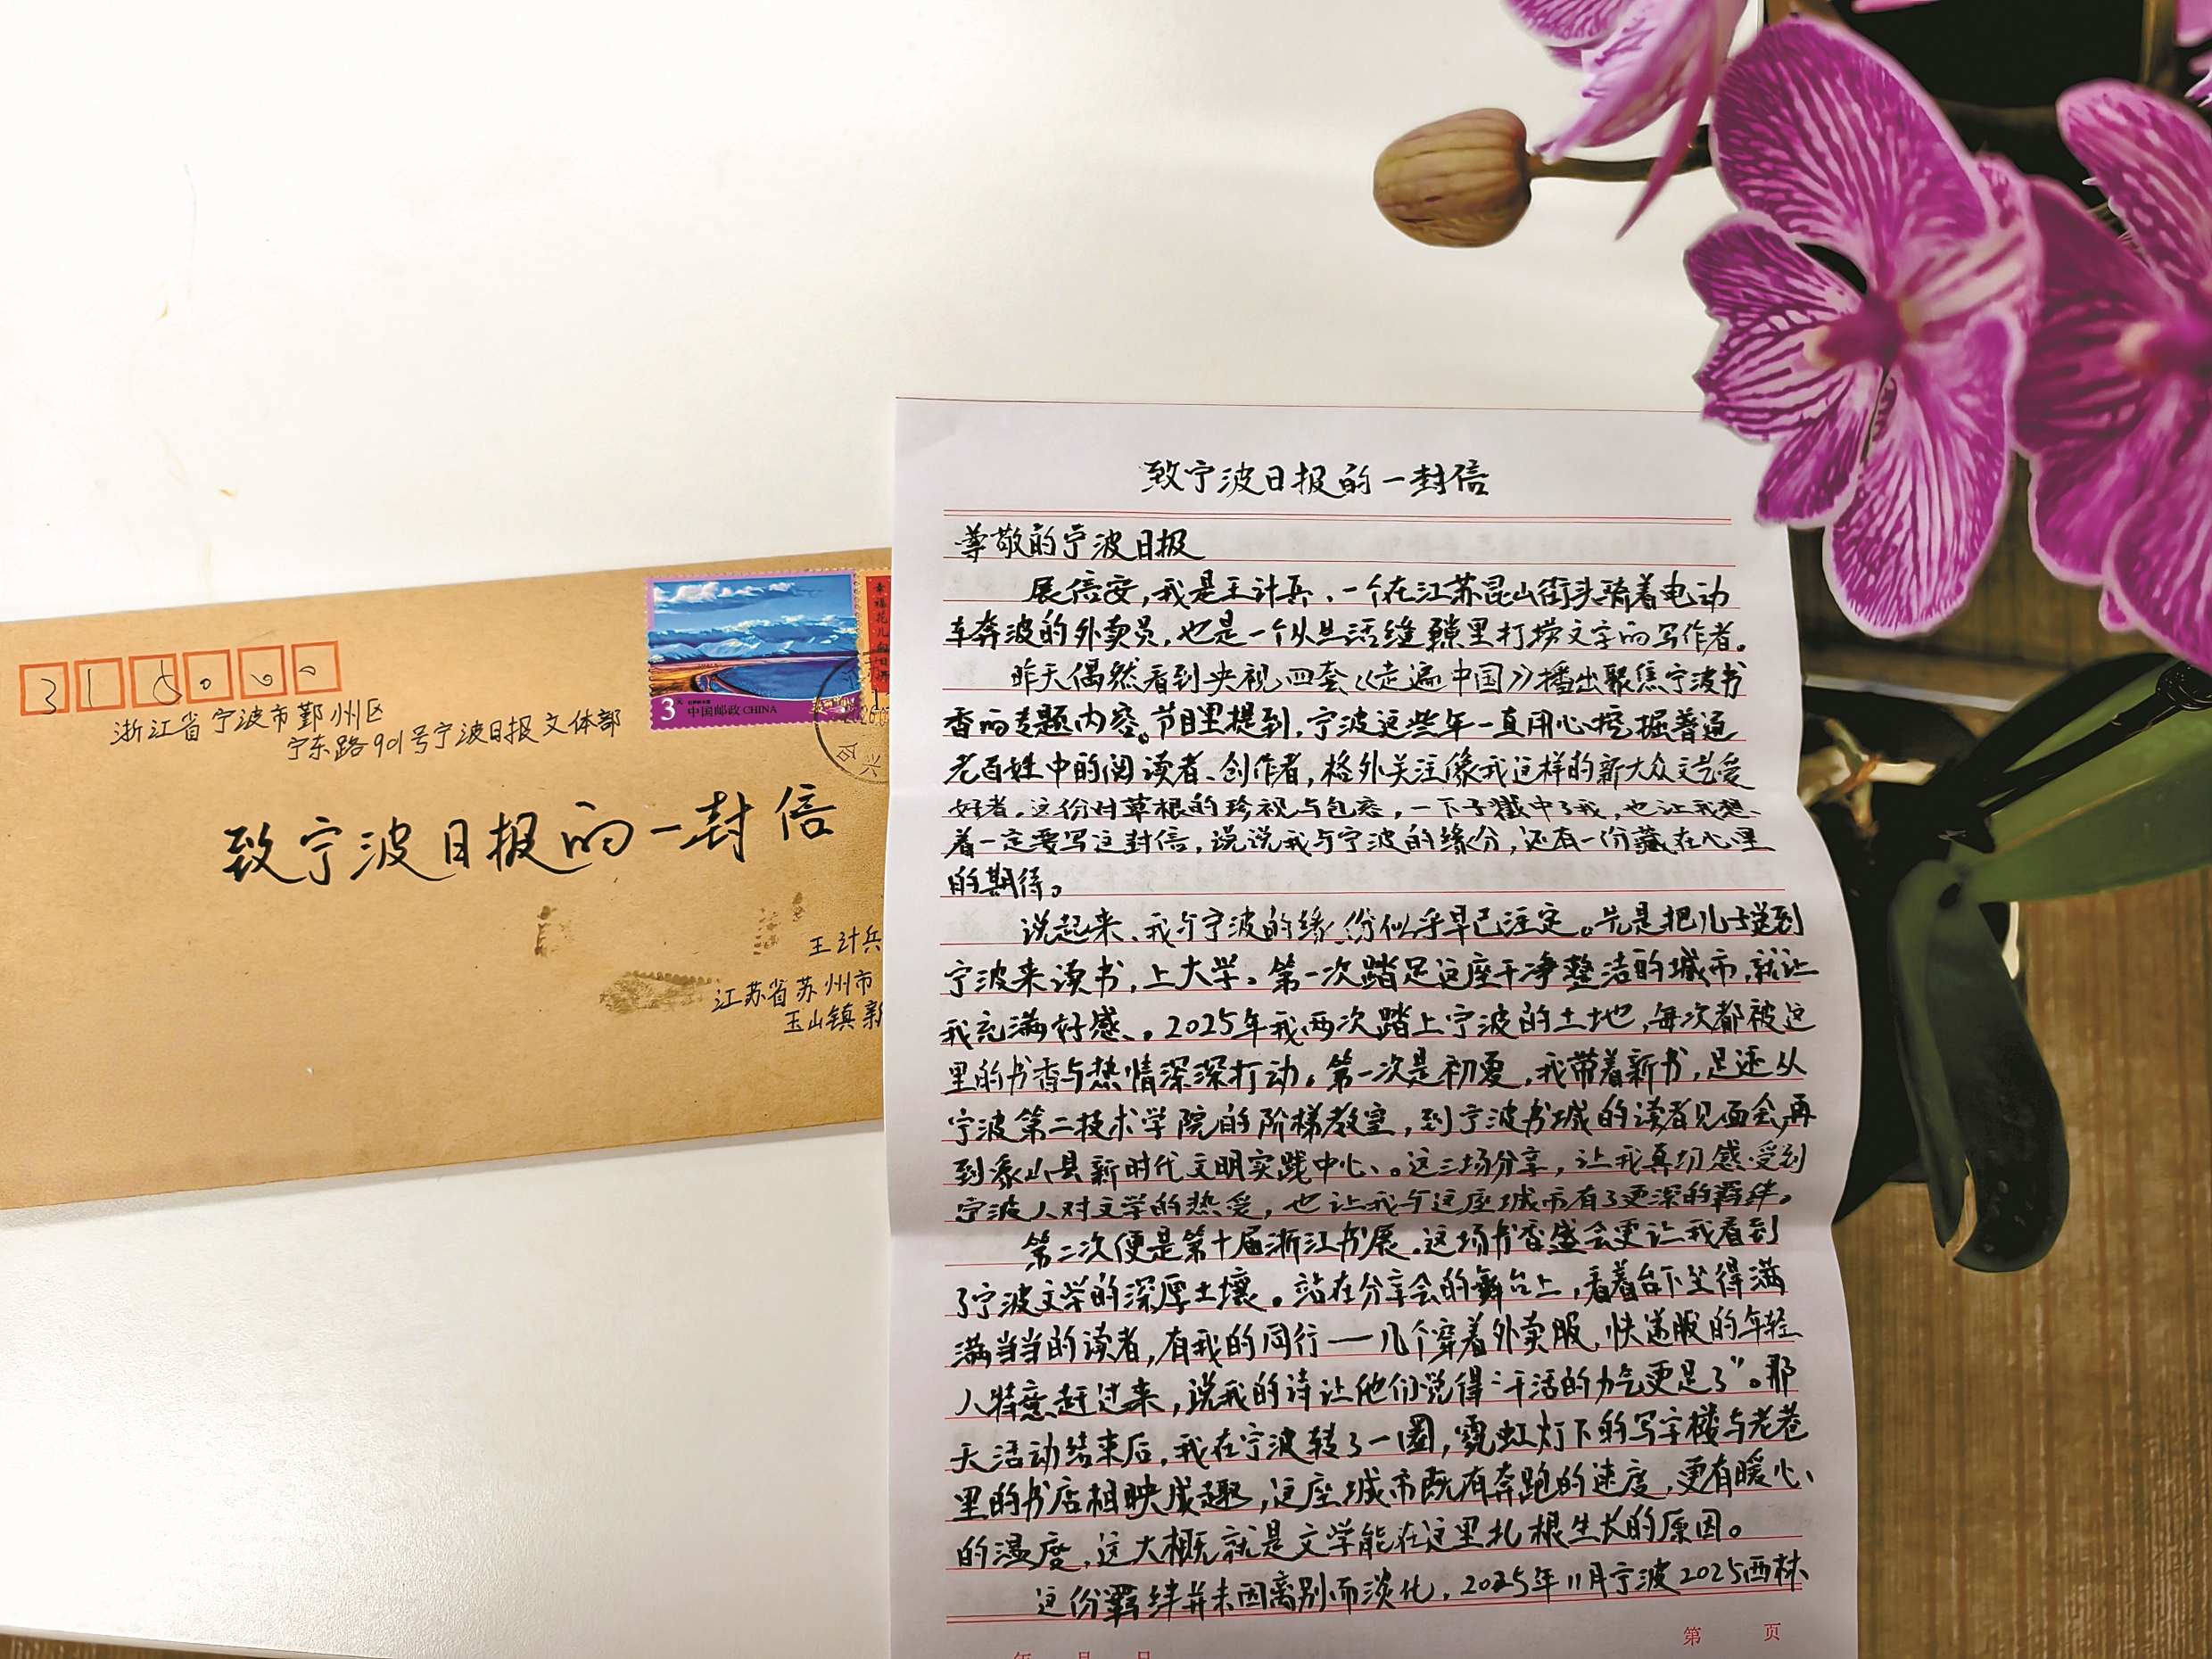 315000
浙江省宁波市鄞州区
宁东路901号宁波日报文体部
致宁波日报的一封信
王计兵
江苏省苏州市
玉山镇新
3元
中国邮政 CHINA
幸福花儿向日开
致宁波日报的一封信
尊敬的宁波日报
展信安,我是王计兵、一个在江苏昆山街头骑着电动
车奔波的外卖员,也是一个从生活缝隙里打捞文字的写作者。
昨天偶然看到央视四套《走遍中国》播出聚焦宁波书
香的专题内容。节目里提到,宁波这些年一直用心挖掘普通
老百姓中的阅读者、创作者,格外关注像我这样的新大众文艺爱
好者。这份对草根的珍视与包容,一下子戳中了我,也让我想
着一定要写这封信,说说我与宁波的缘分,还有一份藏在心里
的期待。
说起来、我与宁波的缘份似乎早已注定。先是把儿子送到
宁波来读书,上大学。第一次踏足这座干净整洁的城市,就让
我充满好感。2025年我两次踏上宁波的土地,每次都被这
里的书香与热情深深打动。第一次是初夏,我带着新书,足迹从
宁波第二技术学院的阶梯教室,到宁波书城的读者见面会,再
到象山县新时代文明实践中心、。这三场分享,让我真切感受到
宁波人对文学的热爱,也让我与这座城市有了更深的羁绊。
第二次便是第十届浙江书展。这场书香盛会更让我看到
了宁波文学的深厚土壤。站在分享会的舞台上,看着台下坐得满
满当当的读者,有我的同行——几个穿着外卖服,快递服的年轻
人特意赶过来,说我的诗让他们觉得“干活的力气更足了”。那
天活动结束后,我在宁波转了一圈,霓虹灯下的写字楼与老巷
里的书店相映成趣,这座城市既有奔跑的速度,更有暖心
的温度,这大概就是文学能在这里扎根生长的原因。
这份羁绊并未因离别而淡化,2025年11月宁波2025西林
第 页
年 月 日